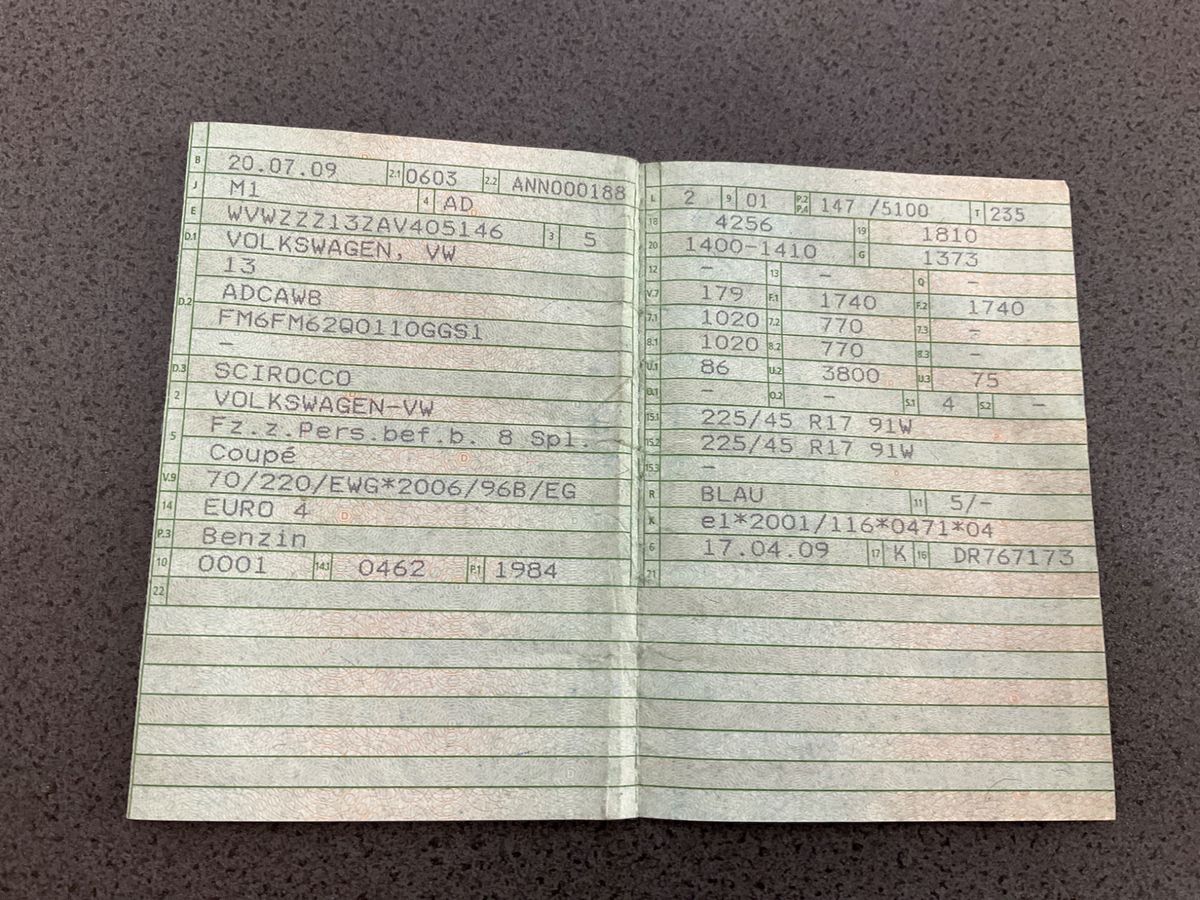 B 20.07.09 2.1 0603 2.2 ANN000188
J M1 4 AD
E WVWZZZ13ZAV405146 3 5
D.1 VOLKSWAGEN, VW
13
D.2 ADCAW8
FM6FM62Q0110GGS1
–
D.3 SCIROCCO
2 VOLKSWAGEN-VW
5 Fz.z.Pers.bef.b. 8 Spl.
Coupé
V.9 70/220/EWG*2006/96B/EG
14 EURO 4
P.3 Benzin
10 0001 14.1 0462 P.1 1984
22
L 2 9 01 P.2 P.4 147 /5100 T 235
18 4256 19 1810
20 1400-1410 G 1373
12 – 13 – Q –
V.7 179 F.1 1740 F.2 1740
7.1 1020 7.2 770 7.3 –
8.1 1020 8.2 770 8.3 –
U.1 86 U.2 3800 U.3 75
O.1 – O.2 – S.1 4 S.2 –
15.1 225/45 R17 91W
15.2 225/45 R17 91W
15.3 –
R BLAU 11 5/-
K e1*2001/116*0471*04
6 17.04.09 17 K 16 DR767173
21